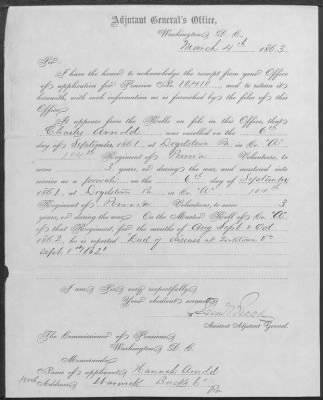 Adjutant General's Office,
Washington D. C.
March 4th 1863.
Sir,
I have the honor to acknowledge the receipt from your Office
of application for Pension No. and to return it
herewith, with such information as is furnished by the files of this
Office.
It appears from the Rolls on file in this Office, that
Charles Arnold was enrolled on the 6th
day of September 1861, at Doylestown Pa. in Co. "A"
104th Regiment of Penna Volunteers, to
serve 3 years, or during the war, and mustered into
service as a private on the 6th day of September
1861, at Doylestown Pa in Co. "A" 104th
Regiment of Penna Volunteers, to serve 3
years, or during the war. On the Muster Roll of Co. "A"
of that Regiment, for the months of Sept & Oct
1862, he is reported "Died of disease at Yorktown Va
Sept. 1862"
I am, Sir, very respectfully,
Your obedient servant,
Assistant Adjutant General.
The Commissioner of Pensions
Washington D. C.
Memoranda
Name of applicant Hannah Arnold
Address Warwick Bucks Co
Pa